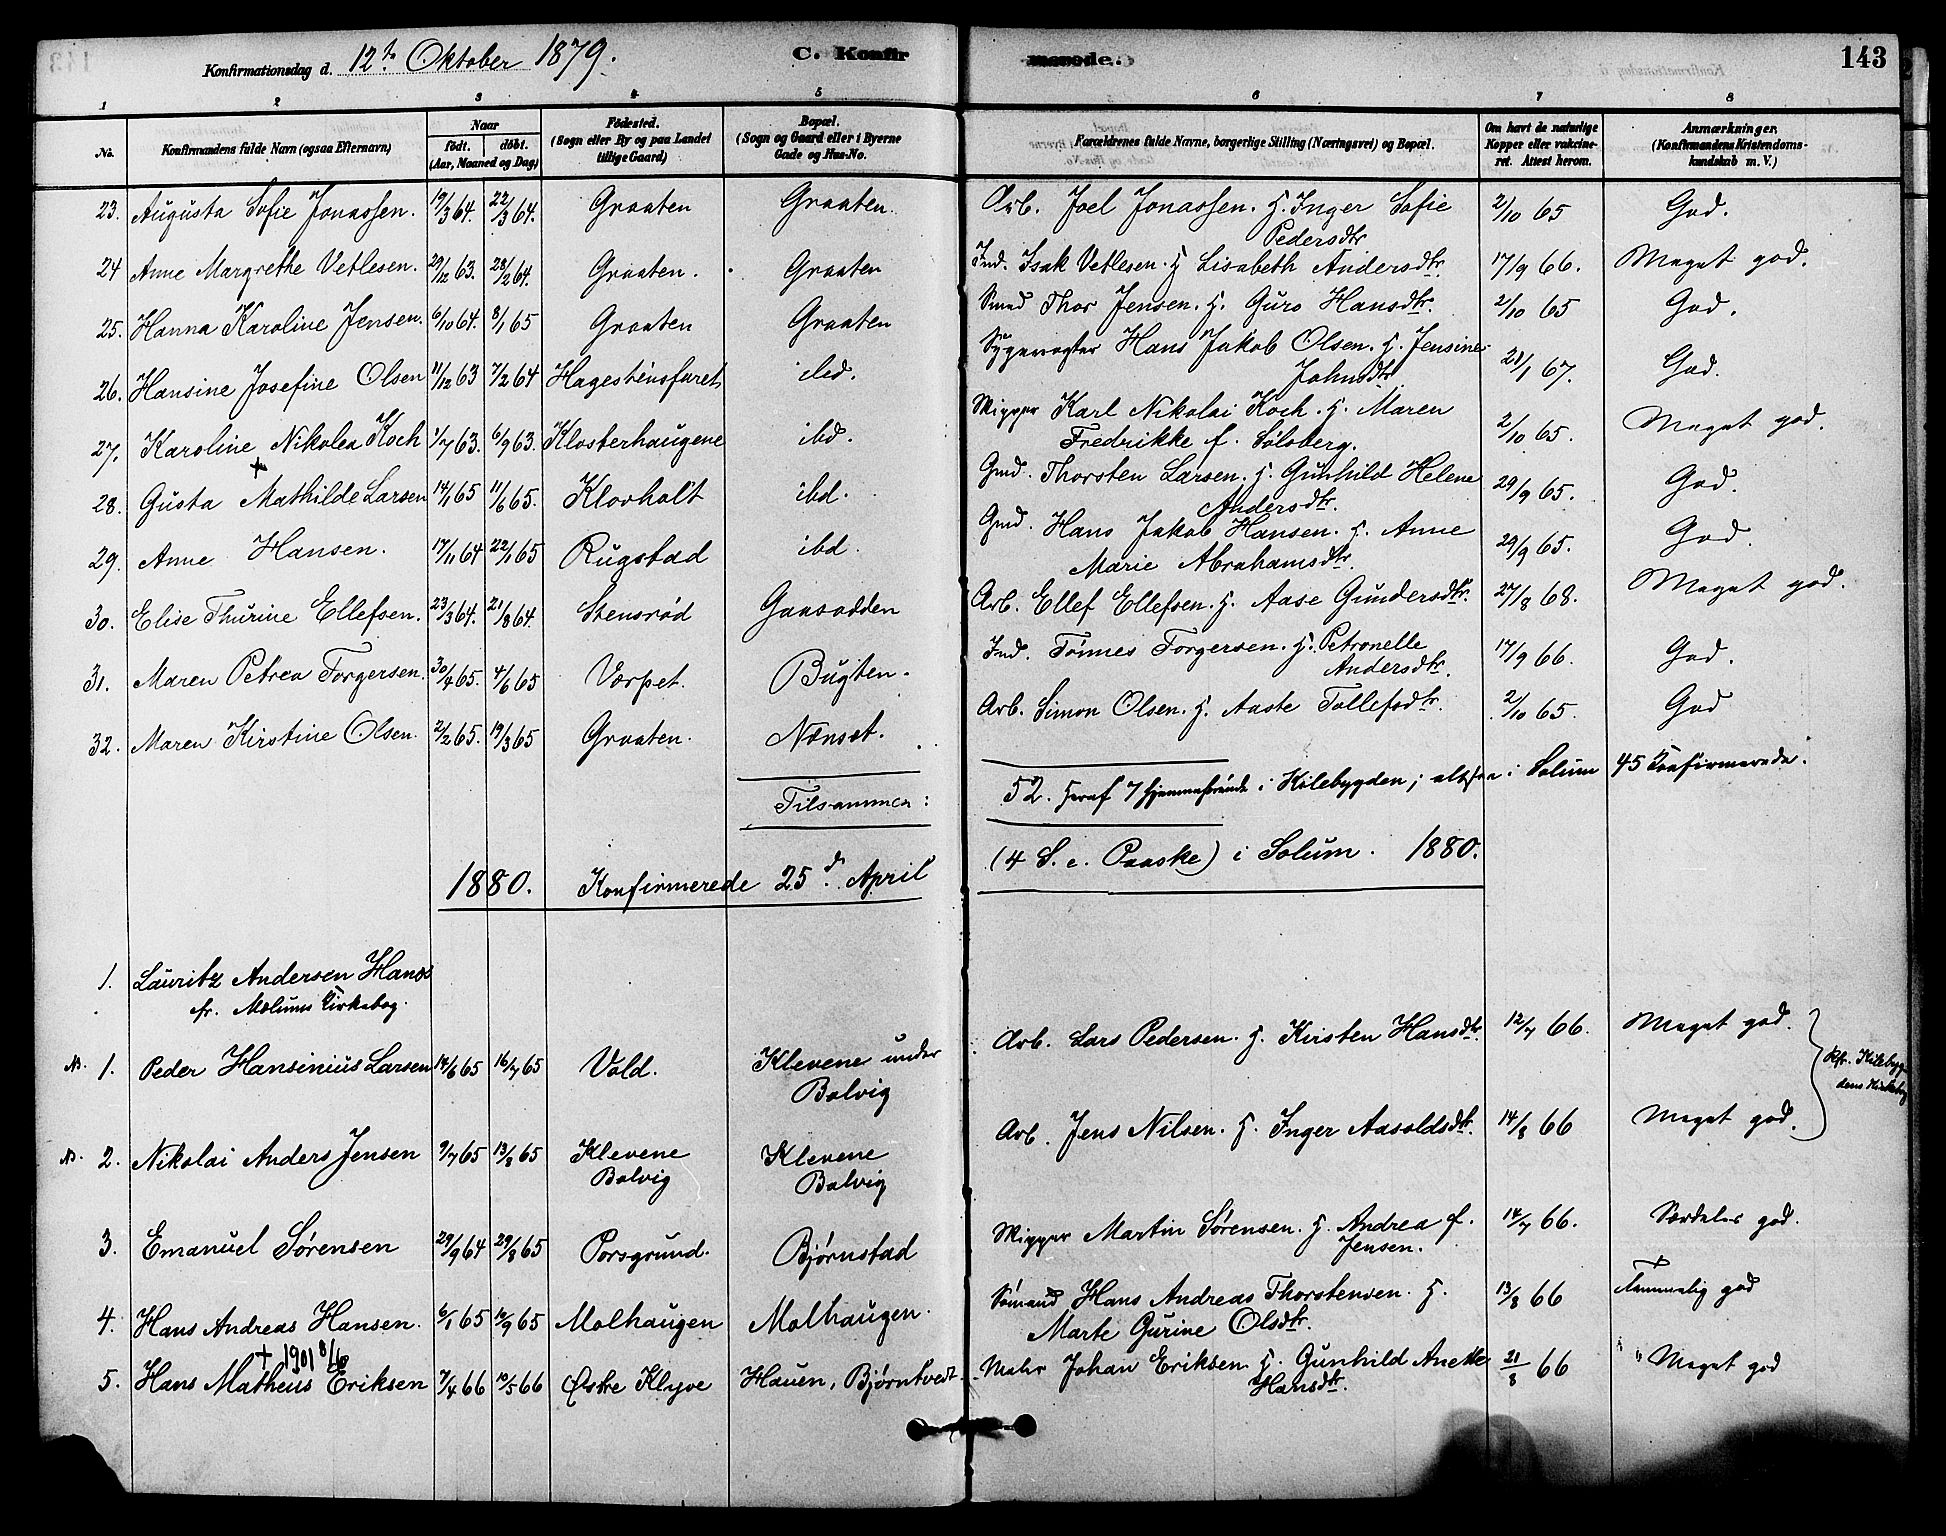 Konfirmationsdag d. 12te Oktober 1879. C. Konfirmerede. 143
1 2 3 4 5 6 7 8
No. Konfirmandens fulde Navn (ogsaa Efternavn) Naar født. døbt. (Aar, Maaned og Dag) Fødested. (Sogn eller By og paa Landet tillige Gaard) Bopæl. (Sogn og Gaard eller i Byerne Gade og Hus-No. Forældrenes fulde Navne, borgerlige Stilling (Næringsvei) og Bopæl. Om havt de naturlige Kopper eller vaccineret. Attest herom. Anmærkninger. (Konfirmandens Kristendomskundskab m. V.)
23. Augusta Sofie Jonassen. 19/3 64. 22/3 64. Graaten Graaten. Arb. Joel Jonassen. H. Inger Sofie Pedersdtr 2/10 65 God.
24 Anne Margrethe Vetlesen. 29/12 63. 28/2 64. Graaten. Graaten Ind. Isak Vetlesen. H. Lisabeth Andersdtr. 17/9 66. Meget god.
25. Hanna Karoline Jensen. 6/10 64. 8/1 65 Graaten Graaten Smed Thor Jensen. H. Guro Hansdtr. 2/10 65 God.
26. Hansine Josefine Olsen 11/12 63 7/2 64 Hagestensfaret ibd. Sygevogter Hans Jakob Olsen. H. Jensine Johnsdtr. 21/1 67. God.
27. Karoline Nikolea Koch 1/7 63. 6/9 63. Klosterhaugene ibd. Skipper Karl Nikolai Koch. H. Maren Fredrikke f. Solsberg. 2/10 65. Meget god.
28. Gusta Mathilde Larsen 14/1 65 11/6 65. Klovholt ibd. Gmd. Thorsten Larsen. H. Gunhild Helene Andersdtr. 29/9 65. God.
29. Anne Hansen. 17/11 64 22/1 65 Rugstad ibd. Gmd. Hans Jakob Hansen. H. Anne Marie Abrahamsdtr. 29/9 65. God.
30. Elise Thurine Ellefsen. 23/3 64. 21/8 64. Stensrød Gaasodden Arb. Ellef Ellefsen. H. Aase Gundersdtr. 27/8 68. Meget god.
31. Maren Petrea Torgersen. 30/4 65. 4/6 65 Værpet. Bugten. Ind. Tønnes Torgersen. H. Petronelle Andersdtr. 17/9 66. God.
32. Maren Kirstine Olsen. 2/2 65. 19/3 65 Graaten. Nænset. Arb. Simon Olsen. H. Aaste Tollefsdtr. 2/10 65. God
Tilsammen: 52. Heraf 7 hjemmehørende i Kilebygden; altsaa i Solum 45 Konfirmerede.
1880. Konfirmerede 25de April (4 S. e. Paaske) i Solum. 1880.
1. Lauritz Andersen Hanes
fr. Melums Kirkebog.
NB. 1. Peder Hansinius Larsen 14/6 65 16/7 65 Vold. Klevene under Bolvig Arb. Lars Pedersen. H. Kirsten Hansdtr. 12/7 66. Meget god.
Kfr. Kilebygdens Kirkebog
NB. 2. Nikolai Anders Jensen 9/7 65 13/8 65 Klevene Bolvig Klevene Bolvig Arb. Jens Nilsen. H. Inger Aasoldsdtr. 14/8 66 Meget god.
3. Emanuel Sørensen 29/9 64 29/8 65 Porsgrund. Bjørnstad Skipper Martin Sørensen. H. Andrea f. Jensen. 14/7 66. Særdeles god.
4. Hans Andreas Hansen. 6/1 65 10/9 65 Molhaugen Molhaugen. Sømand Hans Andreas Thorstensen. H. Marte Gurine Olsdtr. 13/8 66 Temmelig god
+ 1901 8/10
5. Hans Matheus Eriksen 7/4 66 10/5 66 Østre Klyve Hauen, Bjørntvedt. Matr Johan Eriksen H. Gunhild Anette Hansdtr. 21/8 66 Meget god